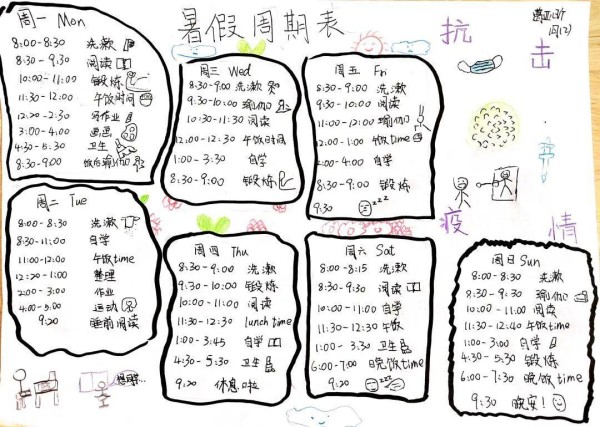 暑假周期表
抗击
疫情
周一 Mon
8:00-8:30 洗漱
8:30-9:30 阅读
10:00-11:00 锻炼
11:30-12:00 午饭时间
12:20-2:30 写作业
3:00-4:00 画画
4:30-5:30 卫生
8:30-9:00 饭后瑜伽
周三 Wed
8:30-9:00 洗漱
9:30-10:00 瑜伽
10:30-11:30 阅读
12:00-12:30 午饭时间
1:00-3:30 自学
8:30-9:00 锻炼
周五 Fri
8:30-9:00 洗漱
9:30-10:00 阅读
11:00-12:00 瑜伽
12:00-1:00 午饭time
2:00-4:00 自学
8:30-9:00 锻炼
9:30 zzz
周二 Tue
8:00-8:30 洗漱
8:30-11:00 自学
11:00-12:00 午饭time
12:20-1:00 整理
2:00-3:00 作业
4:00-5:00 运动
9:20 睡前阅读
周四 Thu
8:30-9:00 洗漱
9:30-10:00 锻炼
10:00-11:00 阅读
11:30-12:30 lunch time
1:00-3:45 自学
4:30-5:30 卫生
9:20 休息啦
周六 Sat
8:00-8:15 洗漱
8:30-9:30 阅读
10:00-11:00 自学
11:30-12:30 午饭
1:00-3:30 卫生
6:00-7:00 晚饭time
9:20 zzz
周日 Sun
8:00-8:30 洗漱
8:30-9:30 瑜伽
10:00-11:00 阅读
11:30-12:40 午饭time
1:00-3:00 自学
4:30-5:30 锻炼
6:00-7:30 晚饭time
9:30 晚安!